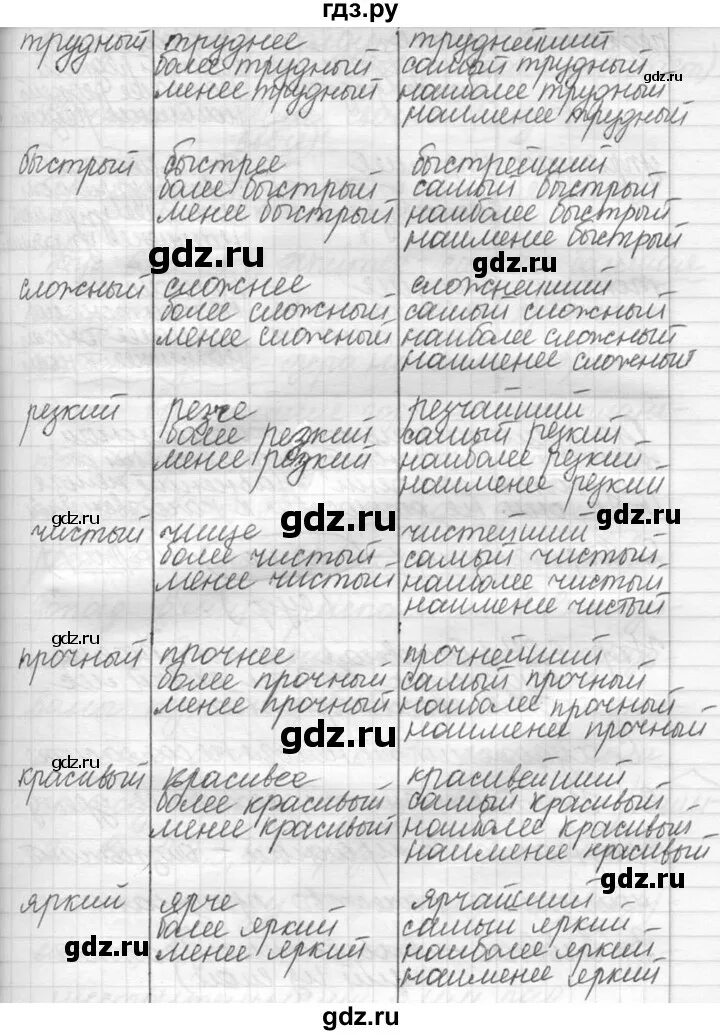 гдз.ру
трудный труднее труднейший
более трудный самый трудный
gdz.ru
менее трудный наиболее трудный
наименее трудный
быстрый быстрее быстрейший
более быстрый самый быстрый
менее быстрый наиболее быстрый
наименее быстрый
gdz.ru gdz.ru
сложный сложнее сложнейший
более сложный самый сложный
менее сложный наиболее сложный
наименее сложный
резкий резче резчайший
более резкий самый резкий
менее резкий наиболее резкий
наименее резкий
gdz.ru gdz.ru gdz.ru
чистый чище чистейший
более чистый самый чистый
менее чистый наиболее чистый
наименее чистый
gdz.ru
прочный прочнее прочнейший
более прочный самый прочный
менее прочный наиболее прочный
наименее прочный
gdz.ru
красивый красивее красивейший
более красивый самый красивый
менее красивый наиболее красивый
наименее красивый
gdz.ru
яркий ярче ярчайший
более яркий самый яркий
менее яркий наиболее яркий
наименее яркий
gdz.ru gdz.ru
gdz.ru